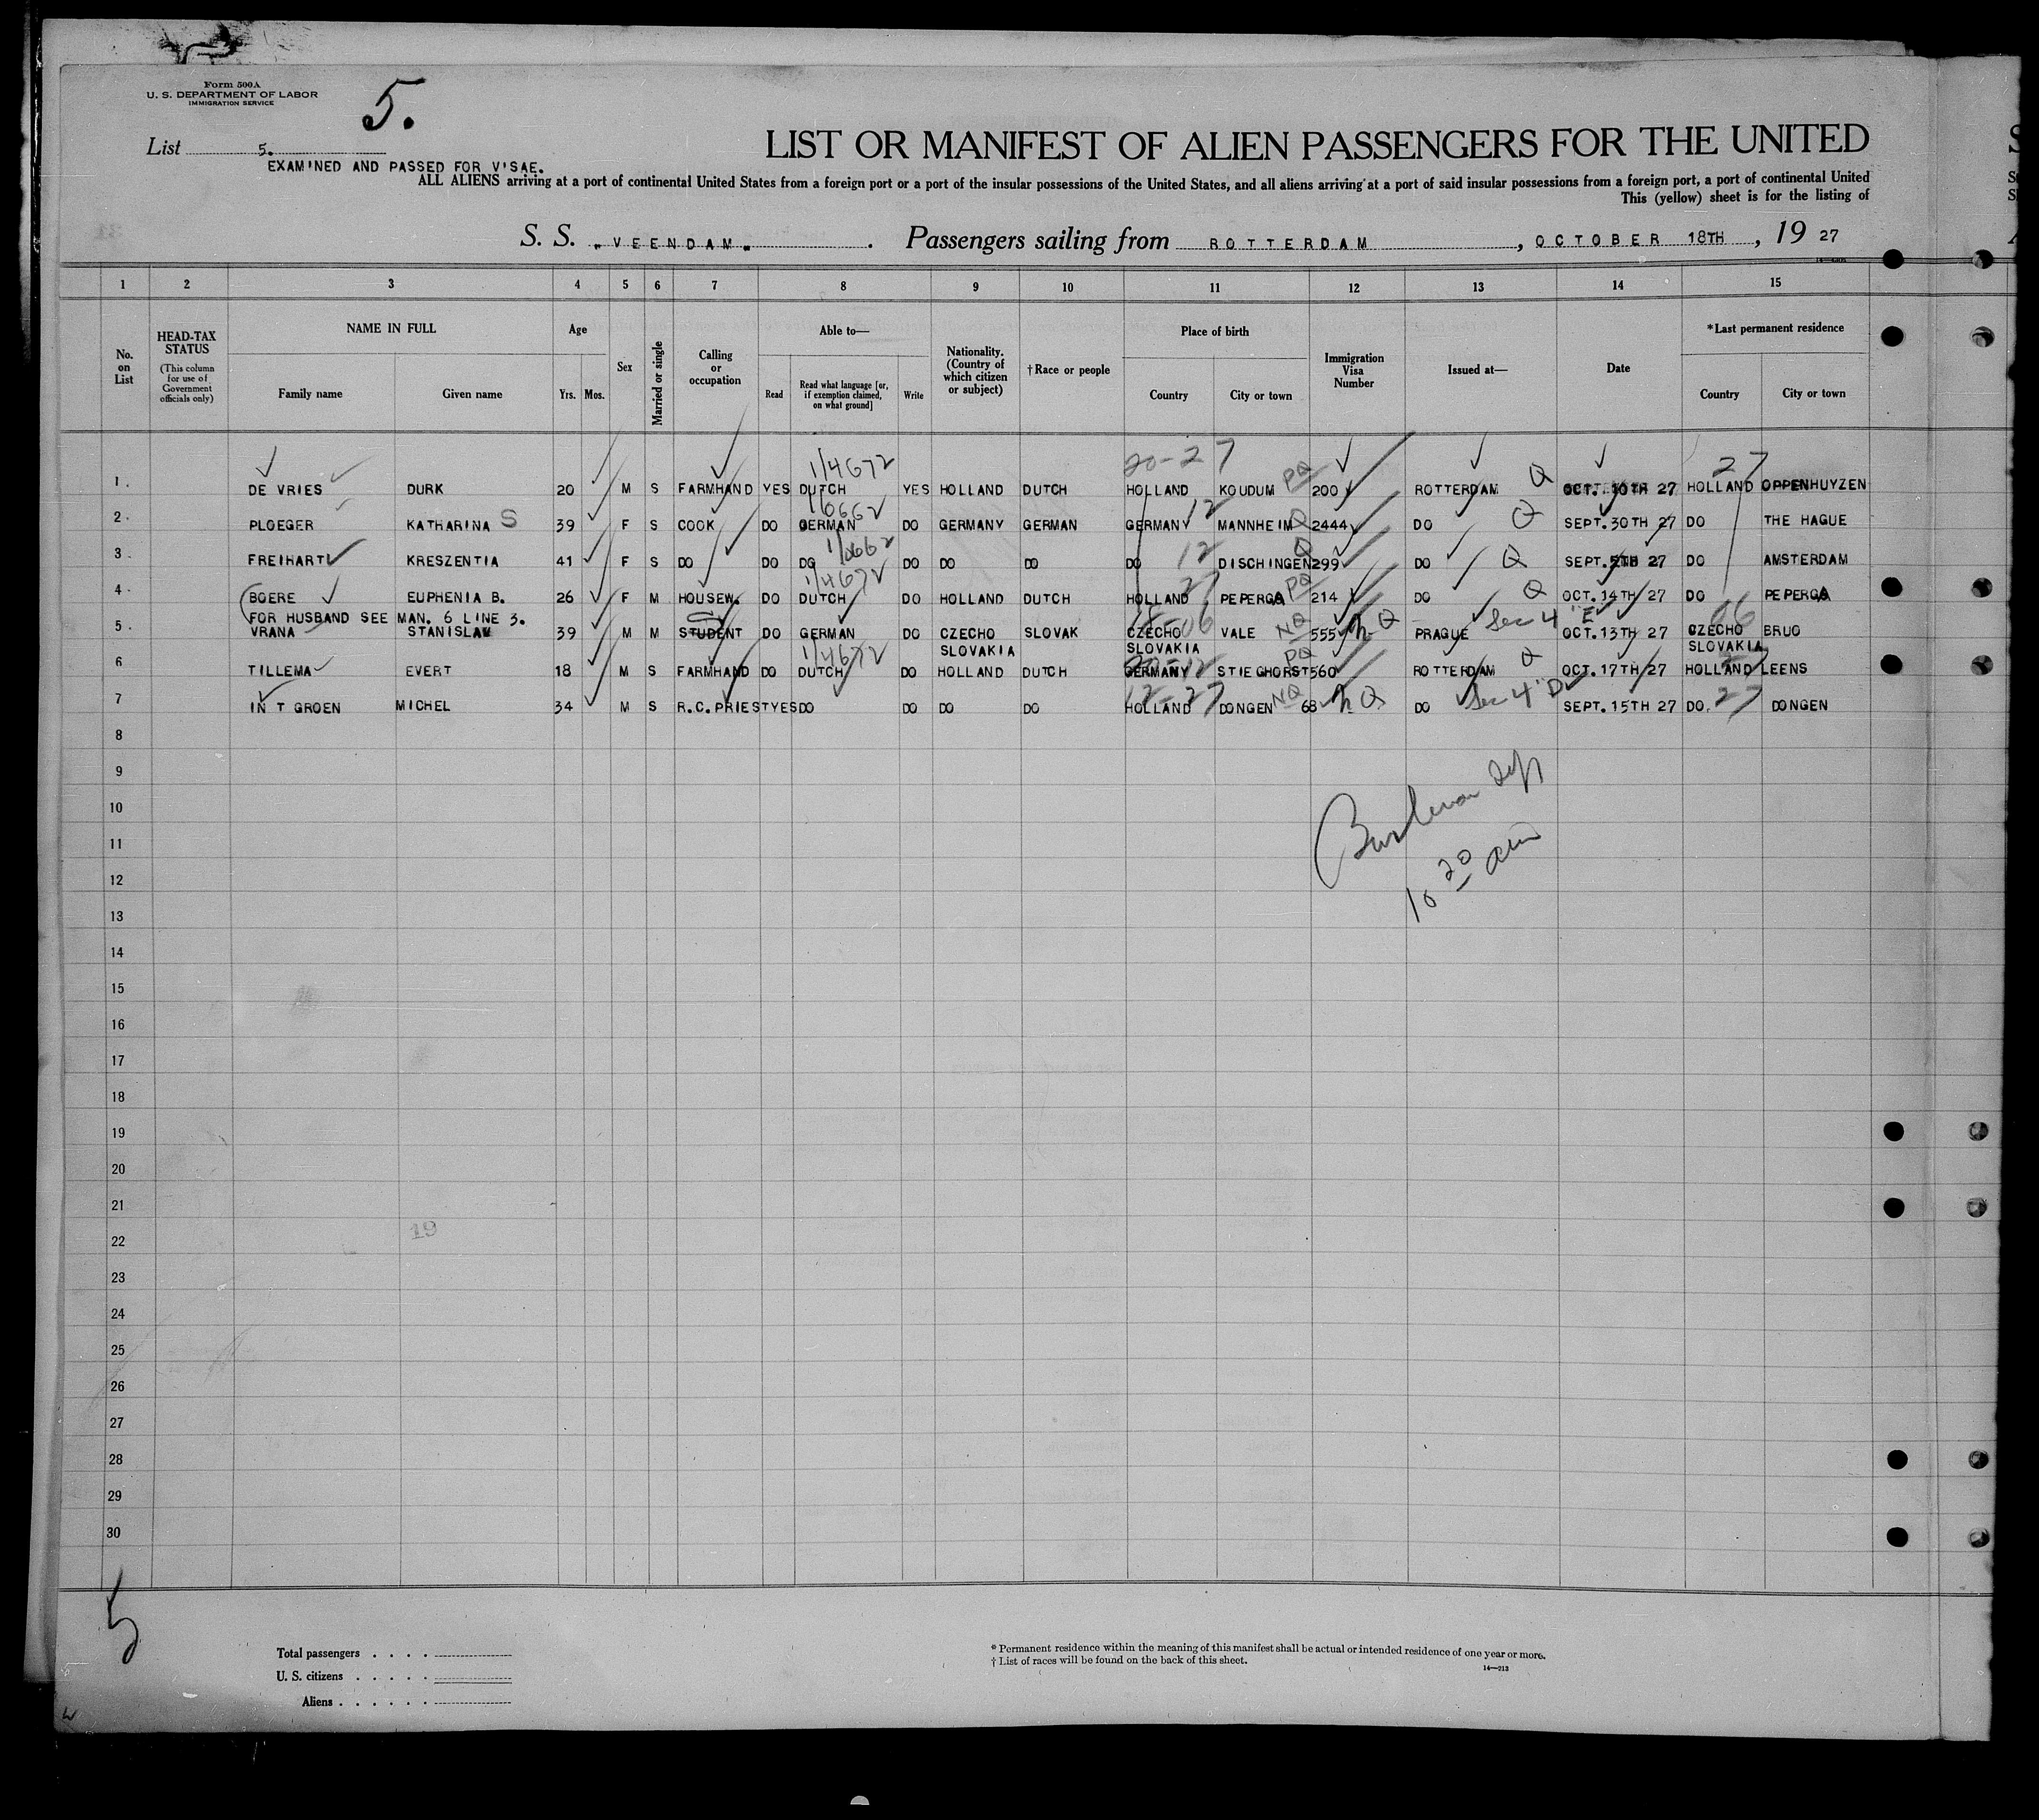 Form 500A
U. S. DEPARTMENT OF LABOR
IMMIGRATION SERVICE
5.
List 5.
EXAMINED AND PASSED FOR V'SAE.
LIST OR MANIFEST OF ALIEN PASSENGERS FOR THE UNITED
ALL ALIENS arriving at a port of continental United States from a foreign port or a port of the insular possessions of the United States, and all aliens arriving at a port of said insular possessions from a foreign port, a port of continental United
This (yellow) sheet is for the listing of
S. S. "VEENDAM". Passengers sailing from ROTTERDAM, OCTOBER 18TH, 19 27
1 2 3 4 5 6 7 8 9 10 11 12 13 14 15
No. on List
HEAD-TAX STATUS (This column for use of Government officials only)
NAME IN FULL Family name Given name
Age Yrs. Mos.
Sex
Married or single
Calling or occupation
Able to— Read Read what language [or, if exemption claimed, on what ground] Write
Nationality. (Country of which citizen or subject)
†Race or people
Place of birth Country City or town
Immigration Visa Number
Issued at—
Date
*Last permanent residence Country City or town
1/4672 20-27 27
1. DE VRIES DURK 20 M S FARMHAND YES DUTCH YES HOLLAND DUTCH HOLLAND KOUDUM PQ 200 ROTTERDAM Q OCT. 10TH 27 HOLLAND OPPENHUYZEN
1/0662 12
2. PLOEGER KATHARINA S 39 F S COOK DO GERMAN DO GERMANY GERMAN GERMANY MANNHEIM Q 2444 DO Q SEPT.30TH 27 DO THE HAGUE
1/0662 12
3. FREIHART KRESZENTIA 41 F S DO DO DO DO DO DO DO DISCHINGEN Q 299 DO Q SEPT. 27 DO AMSTERDAM
1/4672 27
4. BOERE EUPHENIA B. 26 F M HOUSEW. DO DUTCH DO HOLLAND DUTCH HOLLAND PEPERGA PQ 214 DO Q OCT.14TH 27 DO PEPERGA
FOR HUSBAND SEE MAN. 6 LINE 3.
5. VRANA STANISLAV 39 M M STUDENT DO GERMAN DO CZECHO SLOVAK CZECHO VALE NQ 555 n Q PRAGUE Sec 4 "E" OCT.13TH 27 CZECHO BRUO
SLOVAKIA SLOVAKIA SLOVAKIA
1/4672
6 TILLEMA EVERT 18 M S FARMHAND DO DUTCH DO HOLLAND DUTCH GERMANY STIEGHORST PQ 560 ROTTERDAM Q OCT.17TH 27 HOLLAND LEENS
12-27
7 IN T GROEN MICHEL 34 M S R.C.PRIEST YES DO DO DO DO HOLLAND DONGEN NQ 68 n Q DO Sec 4 "D" SEPT.15TH 27 DO. 27 DONGEN
8
9
10
11
12
10 20 am
13
14
15
16
17
18
19
20
21
19
22
23
24
25
26
27
28
29
30
5
Total passengers
U. S. citizens
Aliens
* Permanent residence within the meaning of this manifest shall be actual or intended residence of one year or more.
† List of races will be found on the back of this sheet.
14—213